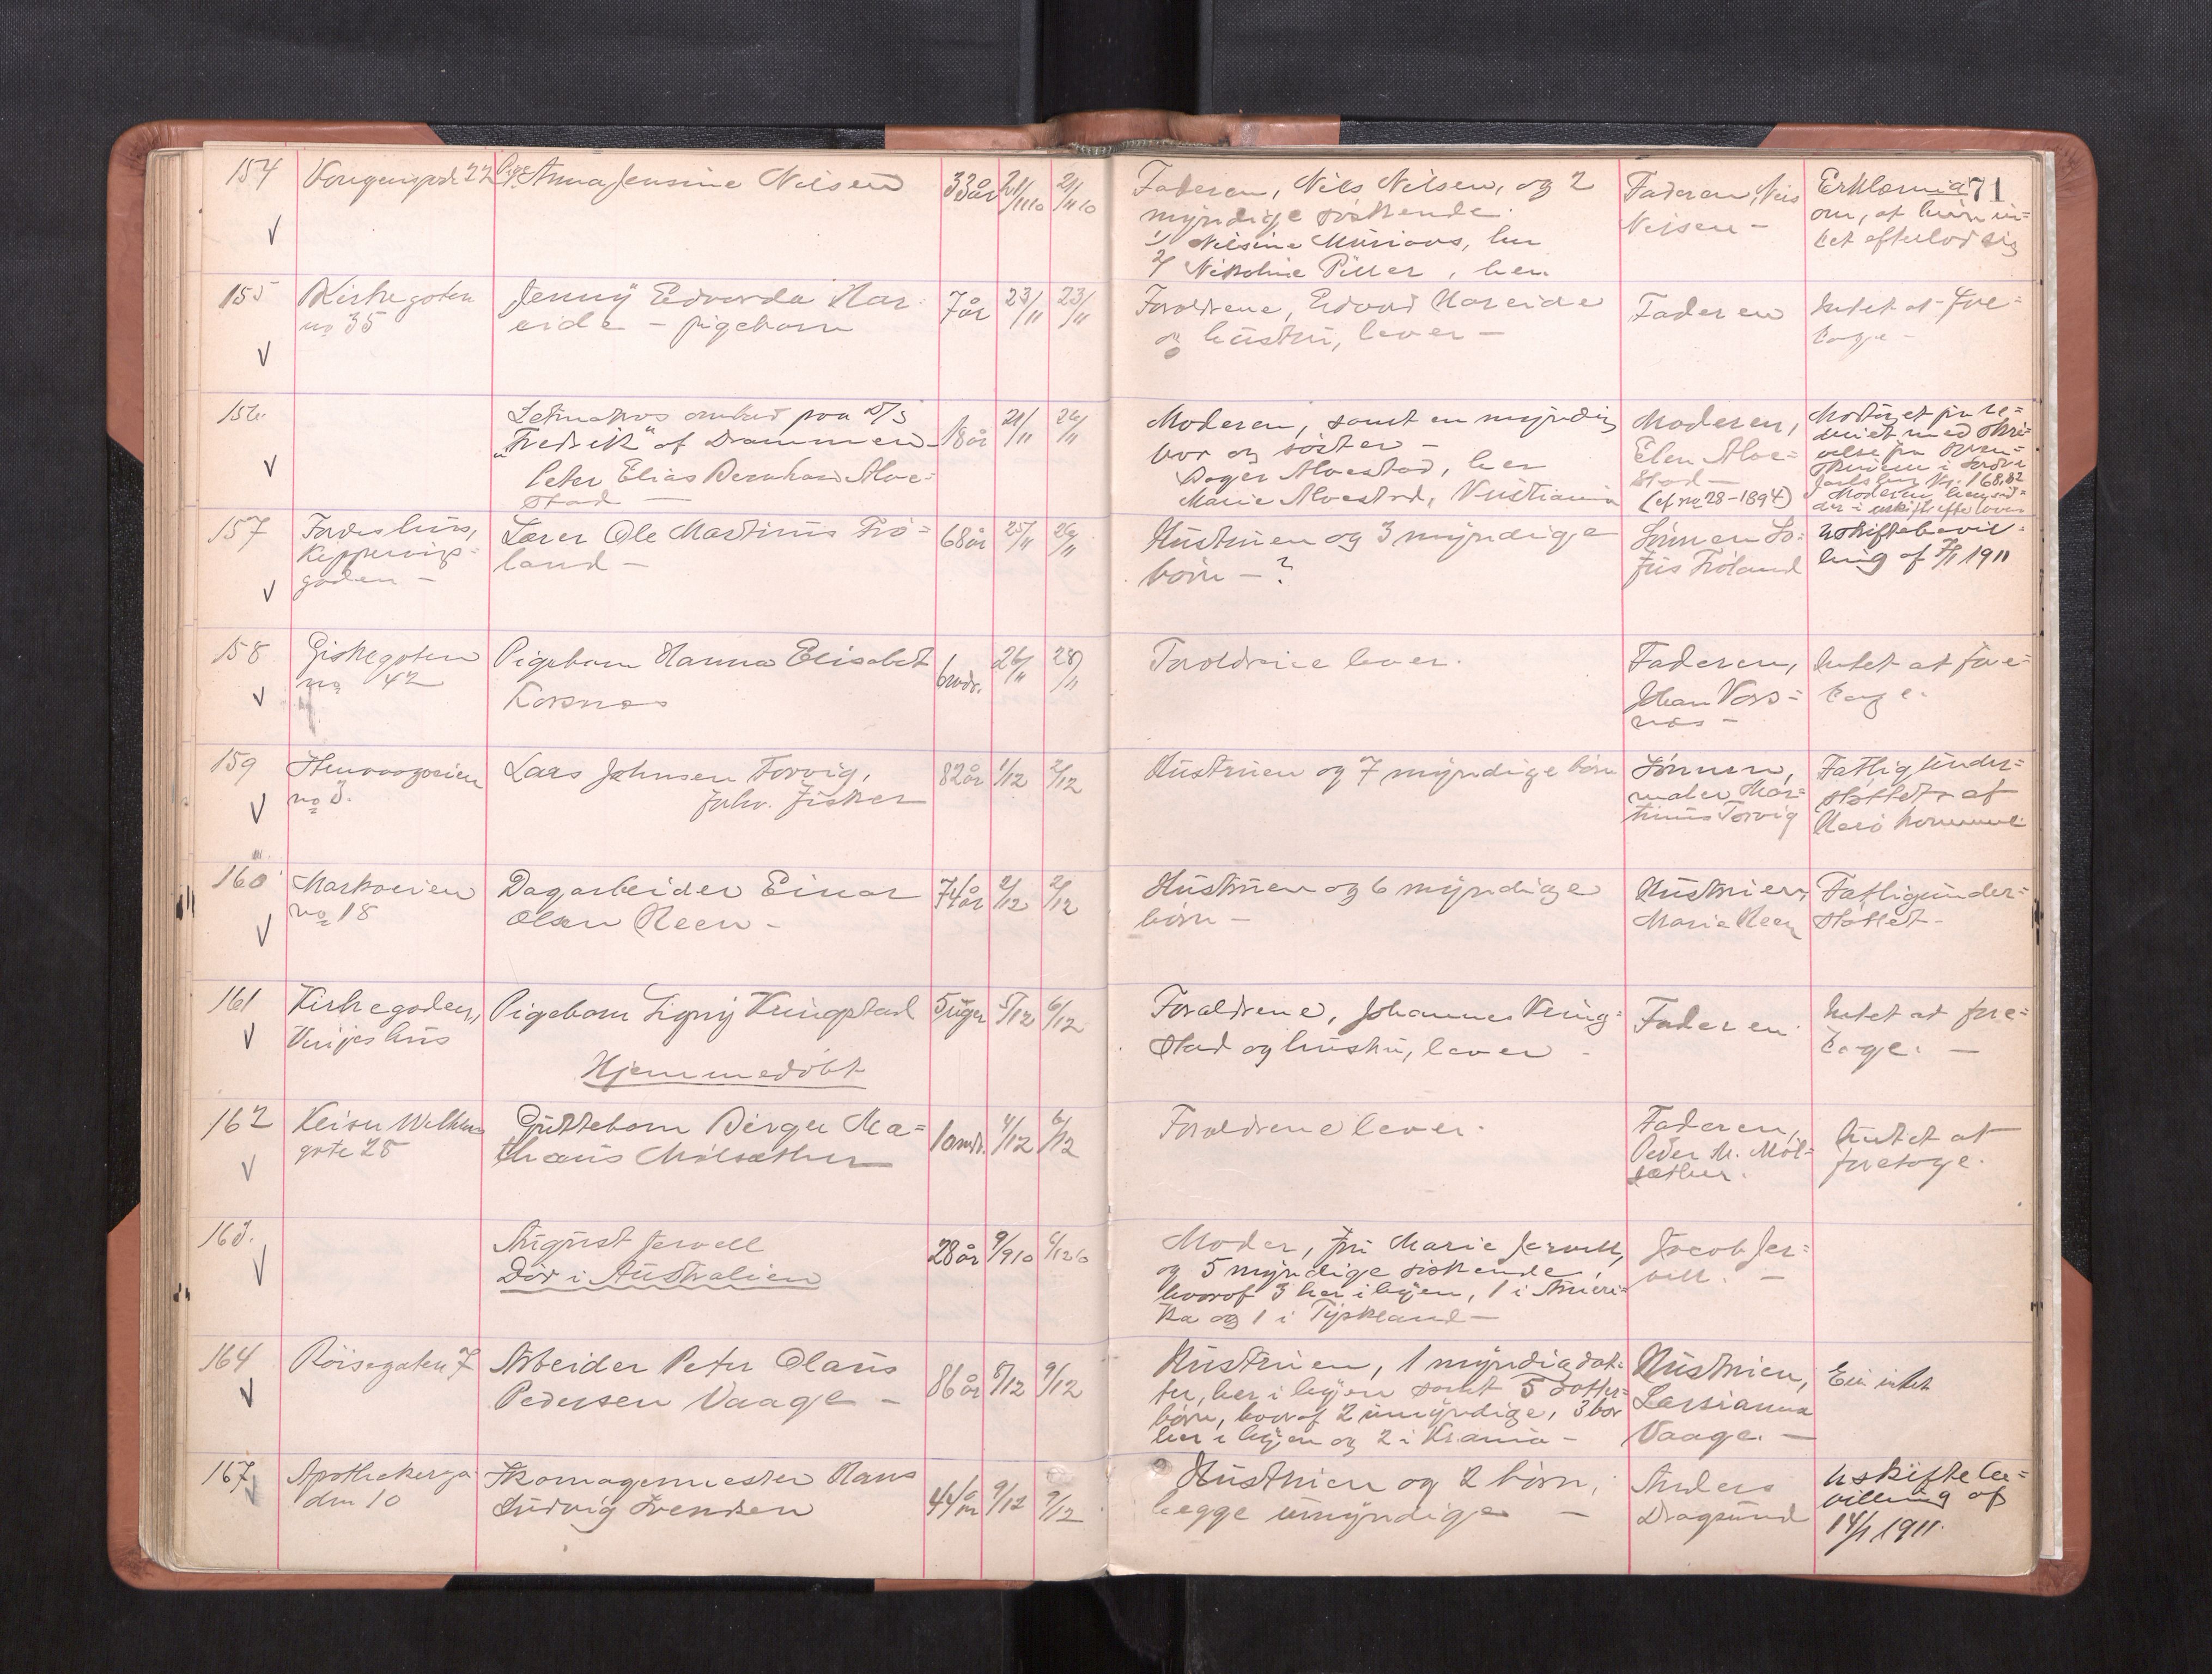 71
154
Pige Anna Jensine Nilsen
33 år
21/11 10
21/11 10
Faderen, Nils Nilsen, og 2
myndige søskende.
1/ Nilsine
her
2/ Nikoline
her.
Faderen, Nils
Nilsen –
om, at hun in=
tet efterlod sig
155
Kirkegaten
no 35
Jenny Edvarda Har=
eide – pigebarn
7 år
23/11
23/11
Forældrene, Edvard Hareide
og hustru, lever –
Faderen
Intet at fore=
tage –
156.
Letmatros ombord paa D/S
"Fredrik" af Drammen –
Peter Elias Bernhard Alve=
stad –
18 år
21/11
26/11
Moderen, samt en myndig
bror og søster –
Alvestad, her
Marie Alvestad, Kristiania
Moderen,
Elen Alve=
stad –
(cf no 28 – 1894)
157
68 år
25/11
26/11
Lærer Ole Martinus Frø=
land –
Hustruen og 3 myndige
børn – ?
Sønnen So=
fus Frøland
Uskiftebevil=
ling af
1911
158
Giskegaten
no 42
Pigebarn Hanna Elisabet
Korsnes
6 mdr.
26/11
28/11
Forældrene lever.
Faderen,
Johan Kors=
nes –
Intet at fore=
tage.
159
no 3.
Lars Johnsen Torvig,
forhv. fisker
82 år
1/12
2/12
Hustruen og 7 myndige børn
Sønnen,
maler Mar=
tinus Torvig
Fattigunder=
støttet af
kommune
160
no 18
Dagarbeider Einar
Olsen Reen –
74 år
2/12
2/12
Hustruen og 6 myndige
børn –
Hustruen,
Marie Reen
Fattigunder=
støttet –
161
Kirkegaden,
hus
Pigebarn Signy Kringstad
5 uger
5/12
6/12
Hjemmedøbt
Forældrene, Johannes Kring=
stad og hustru, lever –
Faderen
Intet at fore=
tage. –
162
Keiser Wilhelms
gate 28
Guttebarn Birger Ma=
thæus Mølsæther
10 mdr.
4/12
6/12
Forældrene lever.
Faderen,
Peder M. Møl=
sæther.
Intet at
foretage.
163.
August Jervell
Død i Australien
28 år
9/9 10
Moder, fru Marie Jervell,
og 5 myndige søskende,
hvoraf 3 her i byen, 1 i Ameri=
ka og 1 i Tyskland –
Jacob Jer=
vell. –
164
Røisegaten 7
Arbeider Peter Olaus
Pedersen Vaage –
86 år
8/12
9/12
Hustruen, 1 myndig dat=
ter, her i byen samt 5 datter=
børn, hvoraf 2 umyndige, 3 bor
her i byen og 2 i Krania –
Hustruen,
Larsianna
Vaage. –
Eier intet
167
Apothekerga
den 10
Skomagermester Hans
Ludvig Svendsen
44 år
9/12
9/12
Hustruen og 2 børn,
begge umyndige –
Anders
Dragsund
Uskiftebe=
villing af
14/1 1911.